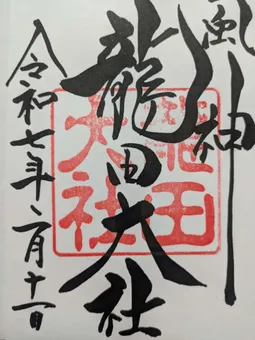 風神
龍田大社
龍田大社
令和七年二月十一日